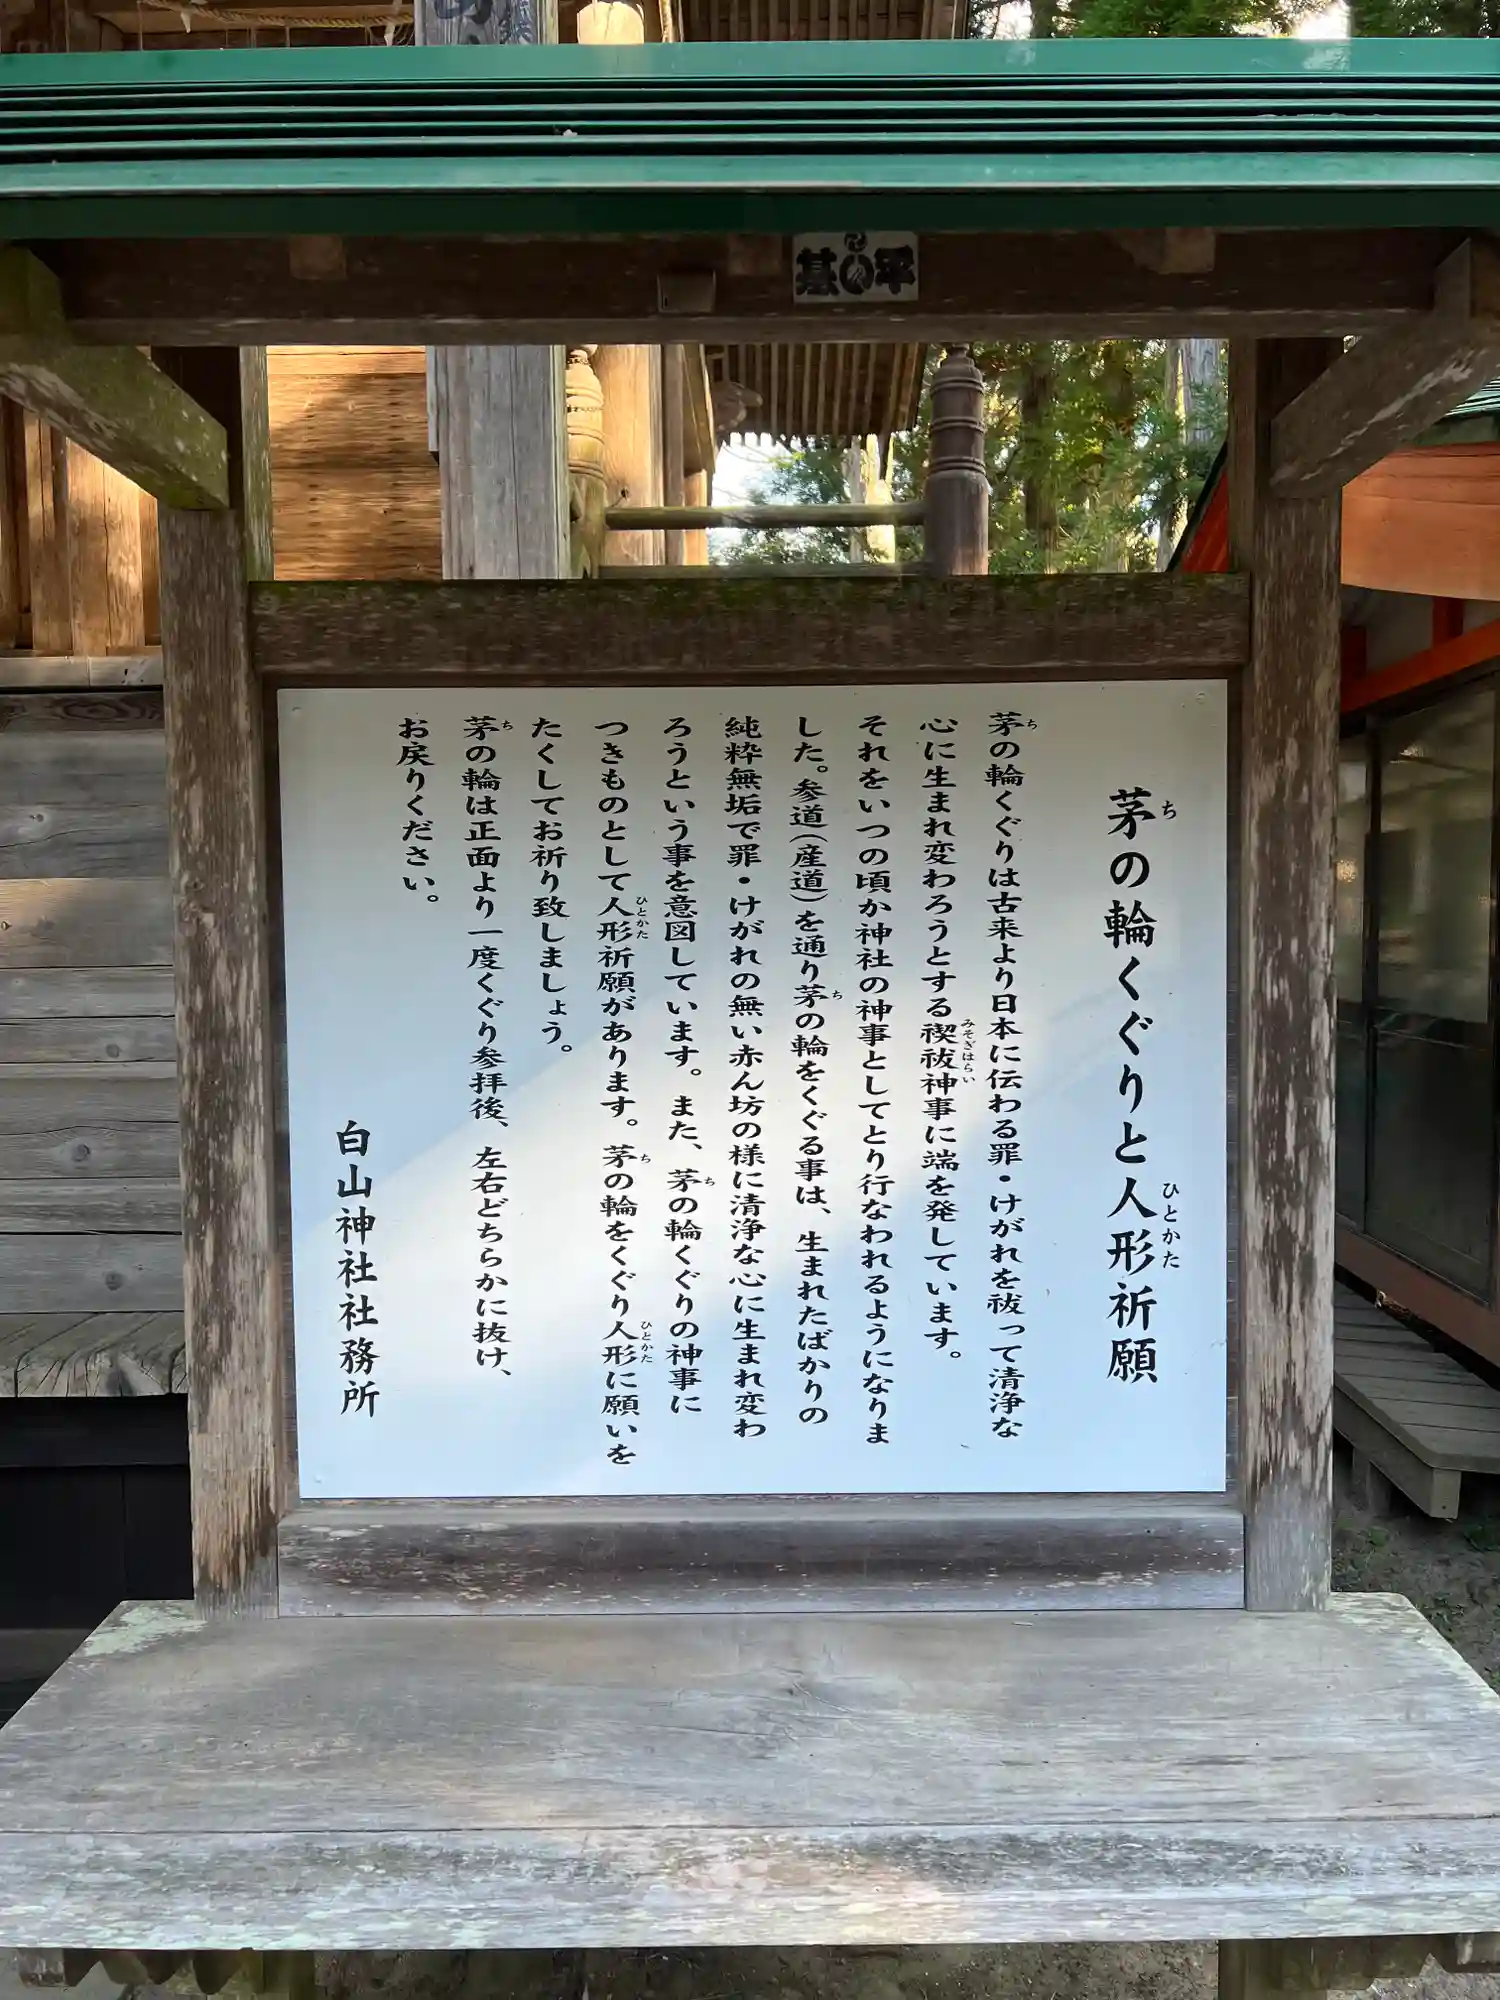 茅の輪くぐりと人形祈願
茅の輪くぐりは古来より日本に伝わる罪・けがれを祓って清浄な
心に生まれ変わろうとする禊祓神事に端を発しています。
それをいつの頃か神社の神事としてとり行なわれるようになりま
した。参道(産道)を通り茅の輪をくぐる事は、生まれたばかりの
純粋無垢で罪・けがれの無い赤ん坊の様に清浄な心に生まれ変わ
ろうという事を意図しています。また、茅の輪くぐりの神事に
つきものとして人形祈願があります。茅の輪をくぐり人形に願いを
たくしてお祈り致しましょう。
茅の輪は正面より一度くぐり参拝後、左右どちらかに抜け、
お戻りください。
白山神社社務所